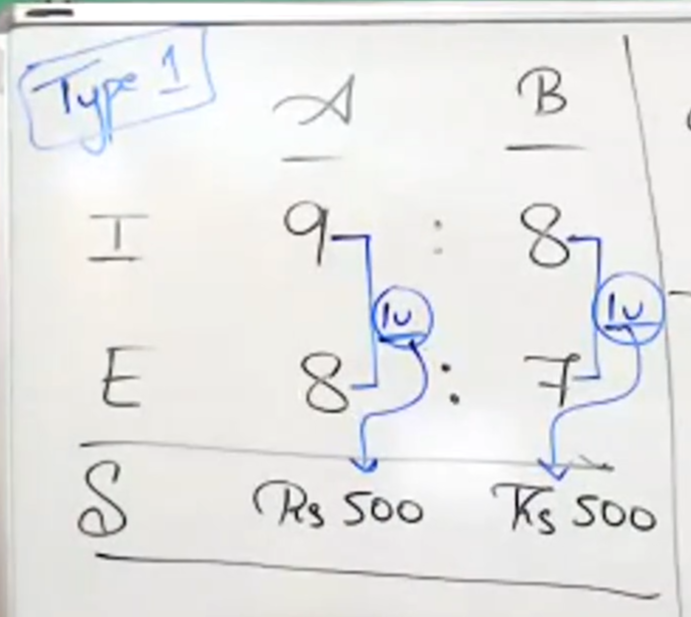 Type 1
A B
I 9 : 8
1u 1u
E 8 : 7
S Rs 500 Rs 500